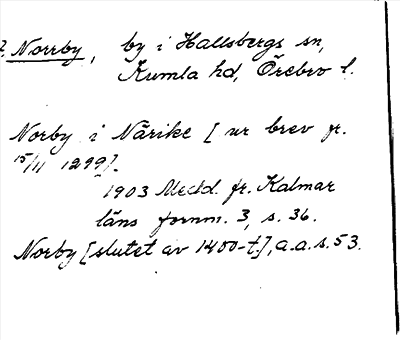 ?. Norrby, by i Hallsbergs sn,
Kumla hd, Örebro l.
Norby i Närike [ ur brev fr.
15/11 1299].
1903 Medd. fr. Kalmar
läns fornm. 3, s. 36.
Norby [slutet av 1400-t.], a.a.s. 53.